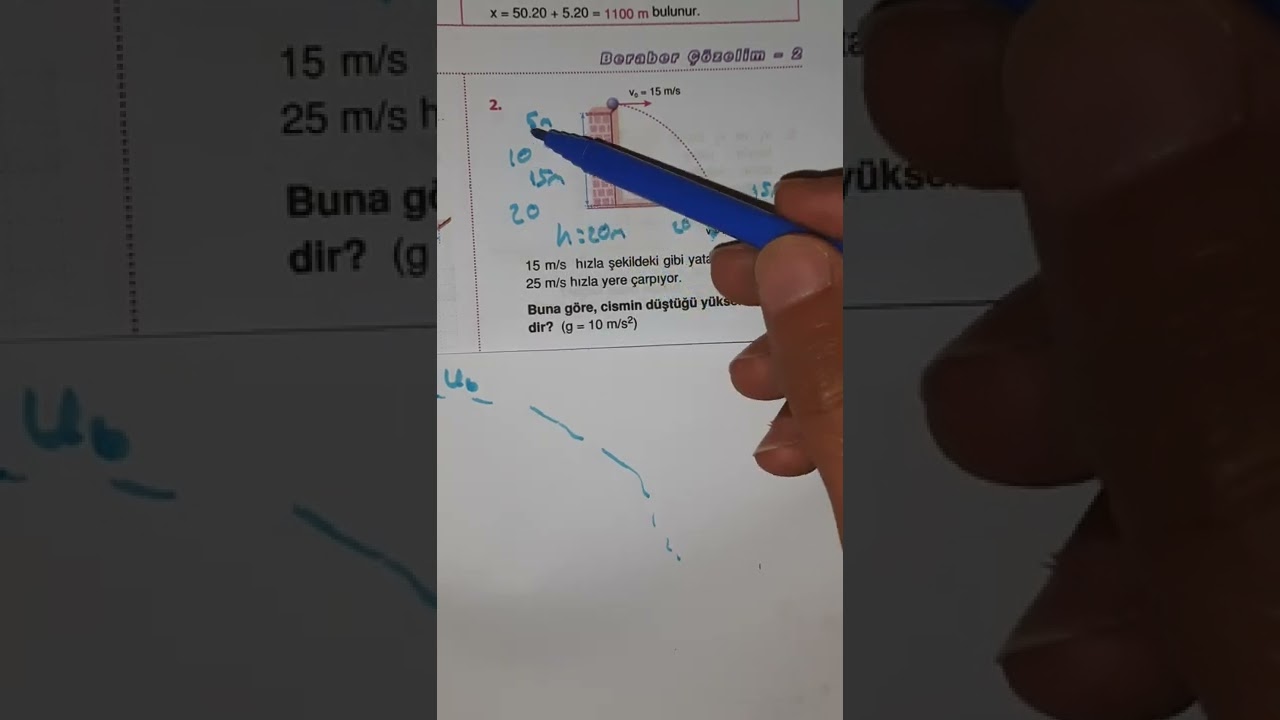 x = 50.20 + 5.20 = 1100 m bulunur.
Beraber Çözelim – 2
2.
v₀ = 15 m/s
5m
10
15m
20
h=20m
20
15 m/s hızla şekildeki gibi
25 m/s hızla yere çarpıyor.
Buna göre, cismin düştüğü
dir? (g = 10 m/s²)